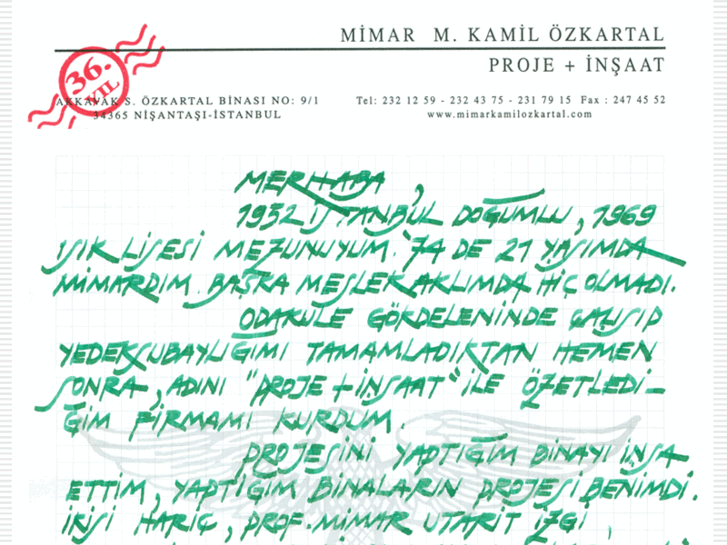 MİMAR M. KAMİL ÖZKARTAL
PROJE + İNŞAAT
36. YIL
AKKAVAK S. ÖZKARTAL BİNASI NO: 9/1
34365 NİŞANTAŞI-İSTANBUL
Tel: 232 12 59 - 232 43 75 - 231 79 15 Fax : 247 45 52
www.mimarkamilozkartal.com
MERHABA,
1952 İSTANBUL DOĞUMLU, 1969
IŞIK LİSESİ MEZUNUYUM. '74 DE 21 YAŞIMDA
MİMARDIM. BAŞKA MESLEK AKLIMDA HİÇ OLMADI.
ODAKULE GÖKDELENİNDE ÇALIŞIP
YEDEKSUBAYLIĞIMI TAMAMLADIKTAN HEMEN
SONRA, ADINI "PROJE + İNŞAAT" İLE ÖZETLEDİ-
ĞİM FİRMAMI KURDUM.
PROJESİNİ YAPTIĞIM BİNAYI İNŞA
ETTİM, YAPTIĞIM BİNALARIN PROJESİ BENİMDİ.
İKİSİ HARİÇ, PROF. MİMAR UTARİT İZGİ,